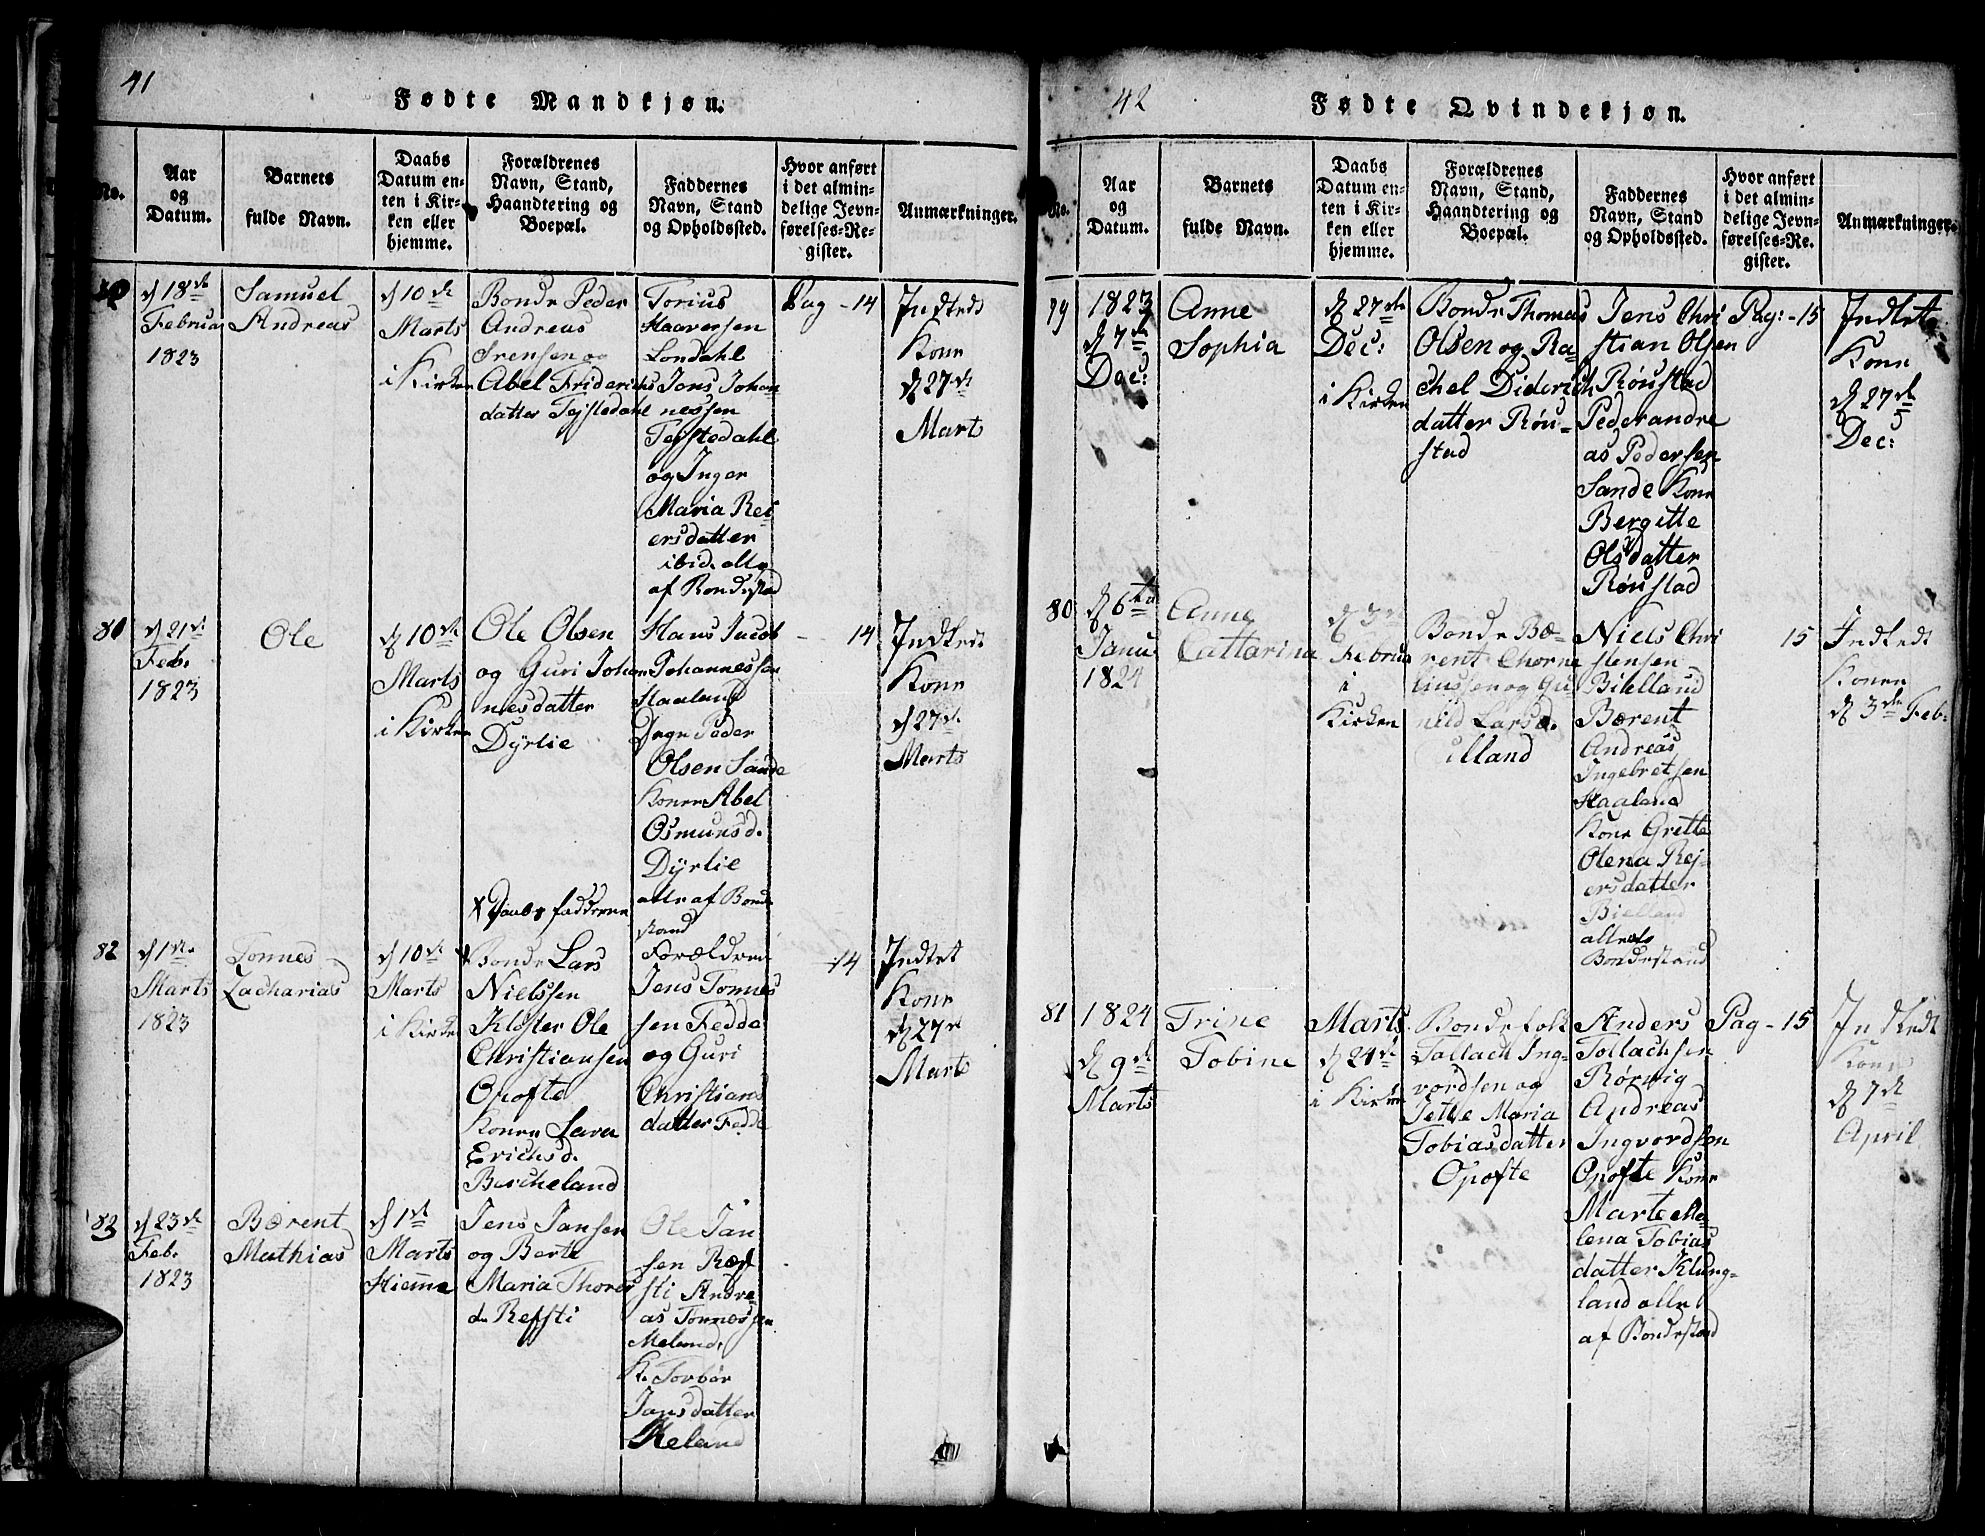 41
Fødte Mandkjøn.
No.
Aar
og
Datum.
Barnets
fulde Navn.
Daabs
Datum en-
ten i Kir-
ken eller
hjemme.
Forældrenes
Navn, Stand,
Haandtering og
Boepæl.
Faddernes
Navn, Stand
og Opholdssted.
Hvor anført
i det almin-
delige Jevn-
førelses-Re-
gister.
Anmærkninger.
d 18de
Februar
1823
Samuel
Andreas
d 10de
Marts
i Kirken
Bonde Peder
Andreas
Srensen og
Abel Friderichs
datter Tejstedahl
Torius
Haaversen
Londahl
Jens Johan
nessen
Tejstedahl
og Inger
Maria Rei
ersdatter
ibid. alle
af Bondestad
Pag - 14
Indtedt
Kone
d 27de
Marts
81
d 21de
Feb.
1823
Ole
d 10de
Marts
i Kirken
Ole Olsen
og Guri Johan
nesdatter
Dÿrlie
Hans Jacob
Johannessen
Haaland
Peder
Olsen Sande
Konen Abel
Osmunsd.
Dÿrlie
alle af Bonde
stand
14
Indtedt
Kone
d 27de
Marts
82
d 1de
Marts
1823
Tønnes
Zacharias
d 10de
Marts
i Kirken
x Daabs fadderne
x Bonde Lars
Nielssen
Kloster Ole
Christiansen
Opofte
Konen Sara
Erichsd.
Bircheland
Forældrene
Jens Tønnes
sen Fedde
og Guri
Christians
datter Fedde
14
Indtet
Kone
d 27de
Marts
83
d 23de
Feb.
1823
Bærent
Mathias
d 1de
Marts
Hiemme
Jens Jansen
og Berte
Maria Thores
d. Refsti
Ole Jan
sen Ræf
sti Andre-
as Tønnessen
Meland.
K. Torbør
Jansdatter
42
Fødte Qvindekjøn.
No.
Aar
og
Datum.
Barnets
fulde Navn.
Daabs
Datum en-
ten i Kir-
ken eller
hjemme.
Forældrenes
Navn, Stand,
Haandtering og
Boepæl.
Faddernes
Navn, Stand
og Opholdssted.
Hvor anført
i det almin-
delige Jevn-
førelses-Re-
gister.
Anmærkninger.
79
1823
d 7de
Dec:
Anne
Sophia
d 27de
Dec:
i Kirken
Bonde Thomas
Olsen og Ra-
chel Diderich
datter Røu-
stad
Jens Chri
stian Olsen
Røustad
Peder Andre
as Pedersen
Sande Kone
Bergitte
Olsdatter
Røustad
Pag: - 15
Indtet
Kone
d 27de
Dec:
80
d 6te
Janu
1824
Anne
Cattarina
d 3de
Februa
i
Kirken
Bonde Bæ-
rent Chorne
liussen og Gu-
nild Larsd.
Niels Chri
stensen
Bielland
Bærent
Andreas
Ingebretsen
Haaland
Kone Grette
Olena Rej-
ersdatter
Bielland
alle af
Bondestand
15
Indtedt
Konen
d 3de Feb:
81
1824
d 9de
Marts
Trine
Tobine
Marts
d 24de
i Kirken
Bondefolk
Tallach Ing-
vordsen og
Jette Maria
Tobiasdatter
Opofte
Anders
Tollachsen
Rørvig
Andreas
Ingvordsen
Opofte Kone
Marte Ma-
lena Tobias
datter Klung-
land alle
af Bondestad
Pag - 15
Indtedt
Kone
d 7de
April